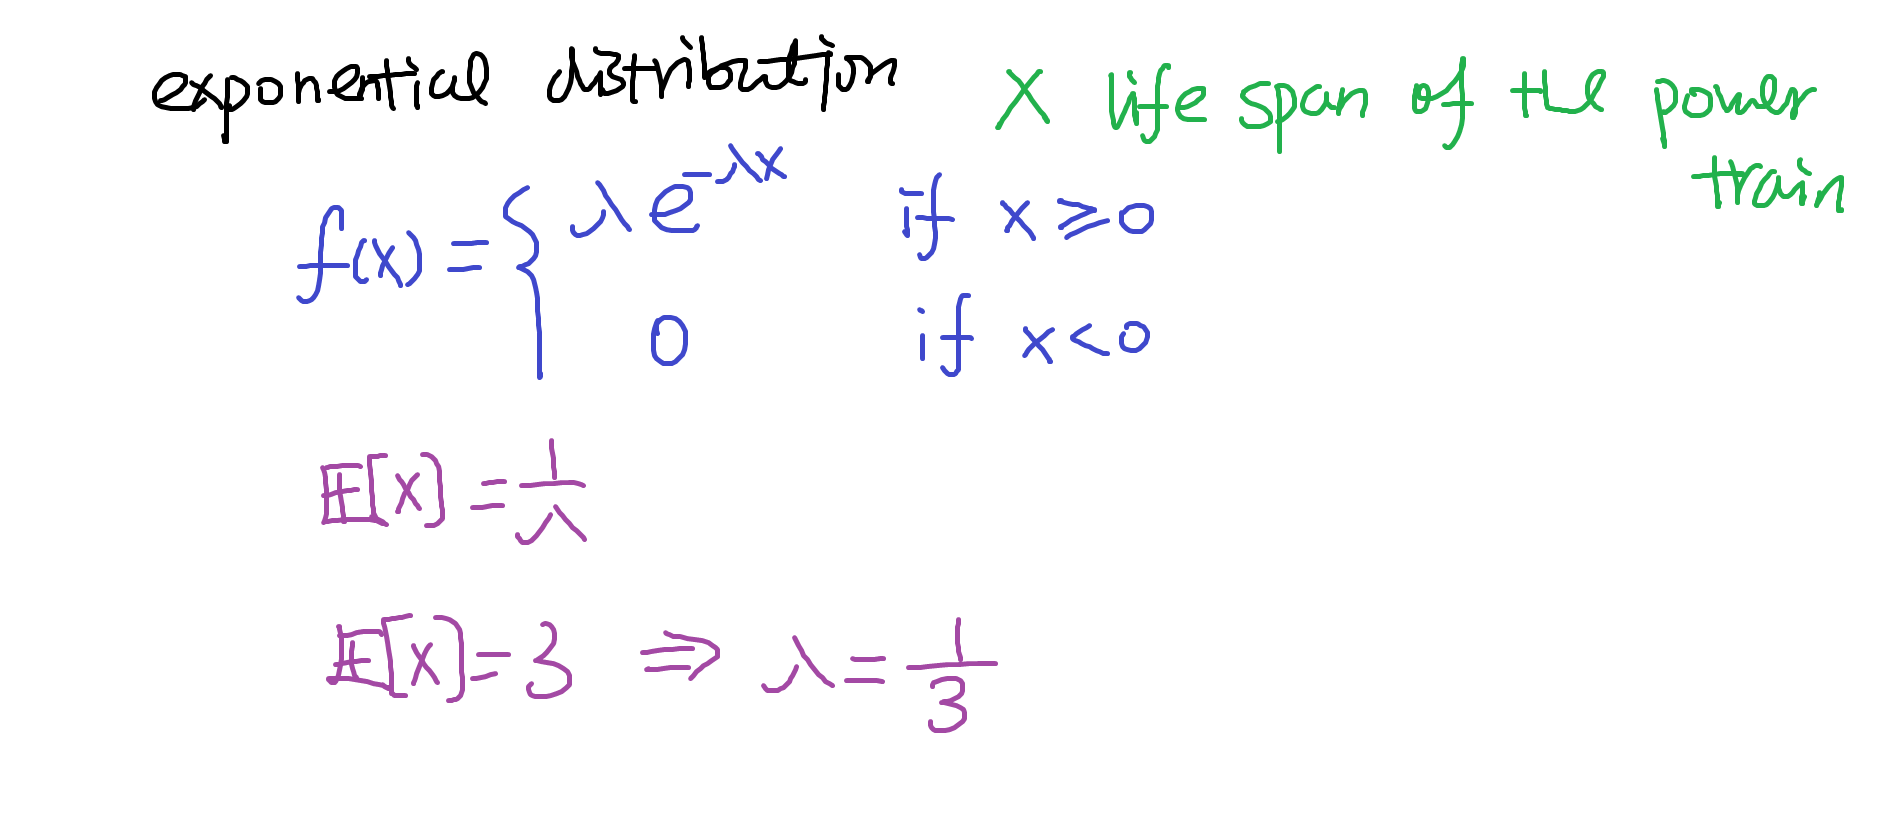 exponential distribution
X life span of the power
train
f(x) = { λe^{-λx} if x ⩾ 0
0 if x < 0
𝔼[X] = 1/λ
𝔼[X] = 3 ⇒ λ = 1/3